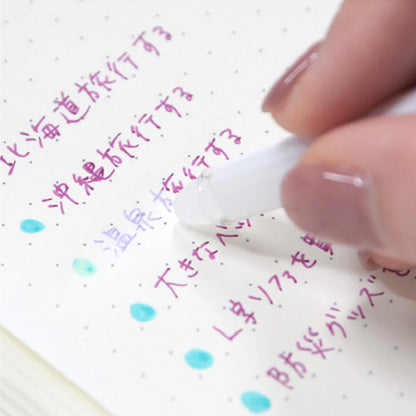 北海道旅行する
沖縄旅行する
温泉旅行する
大きなベ
L字ソファを
防災グッズを